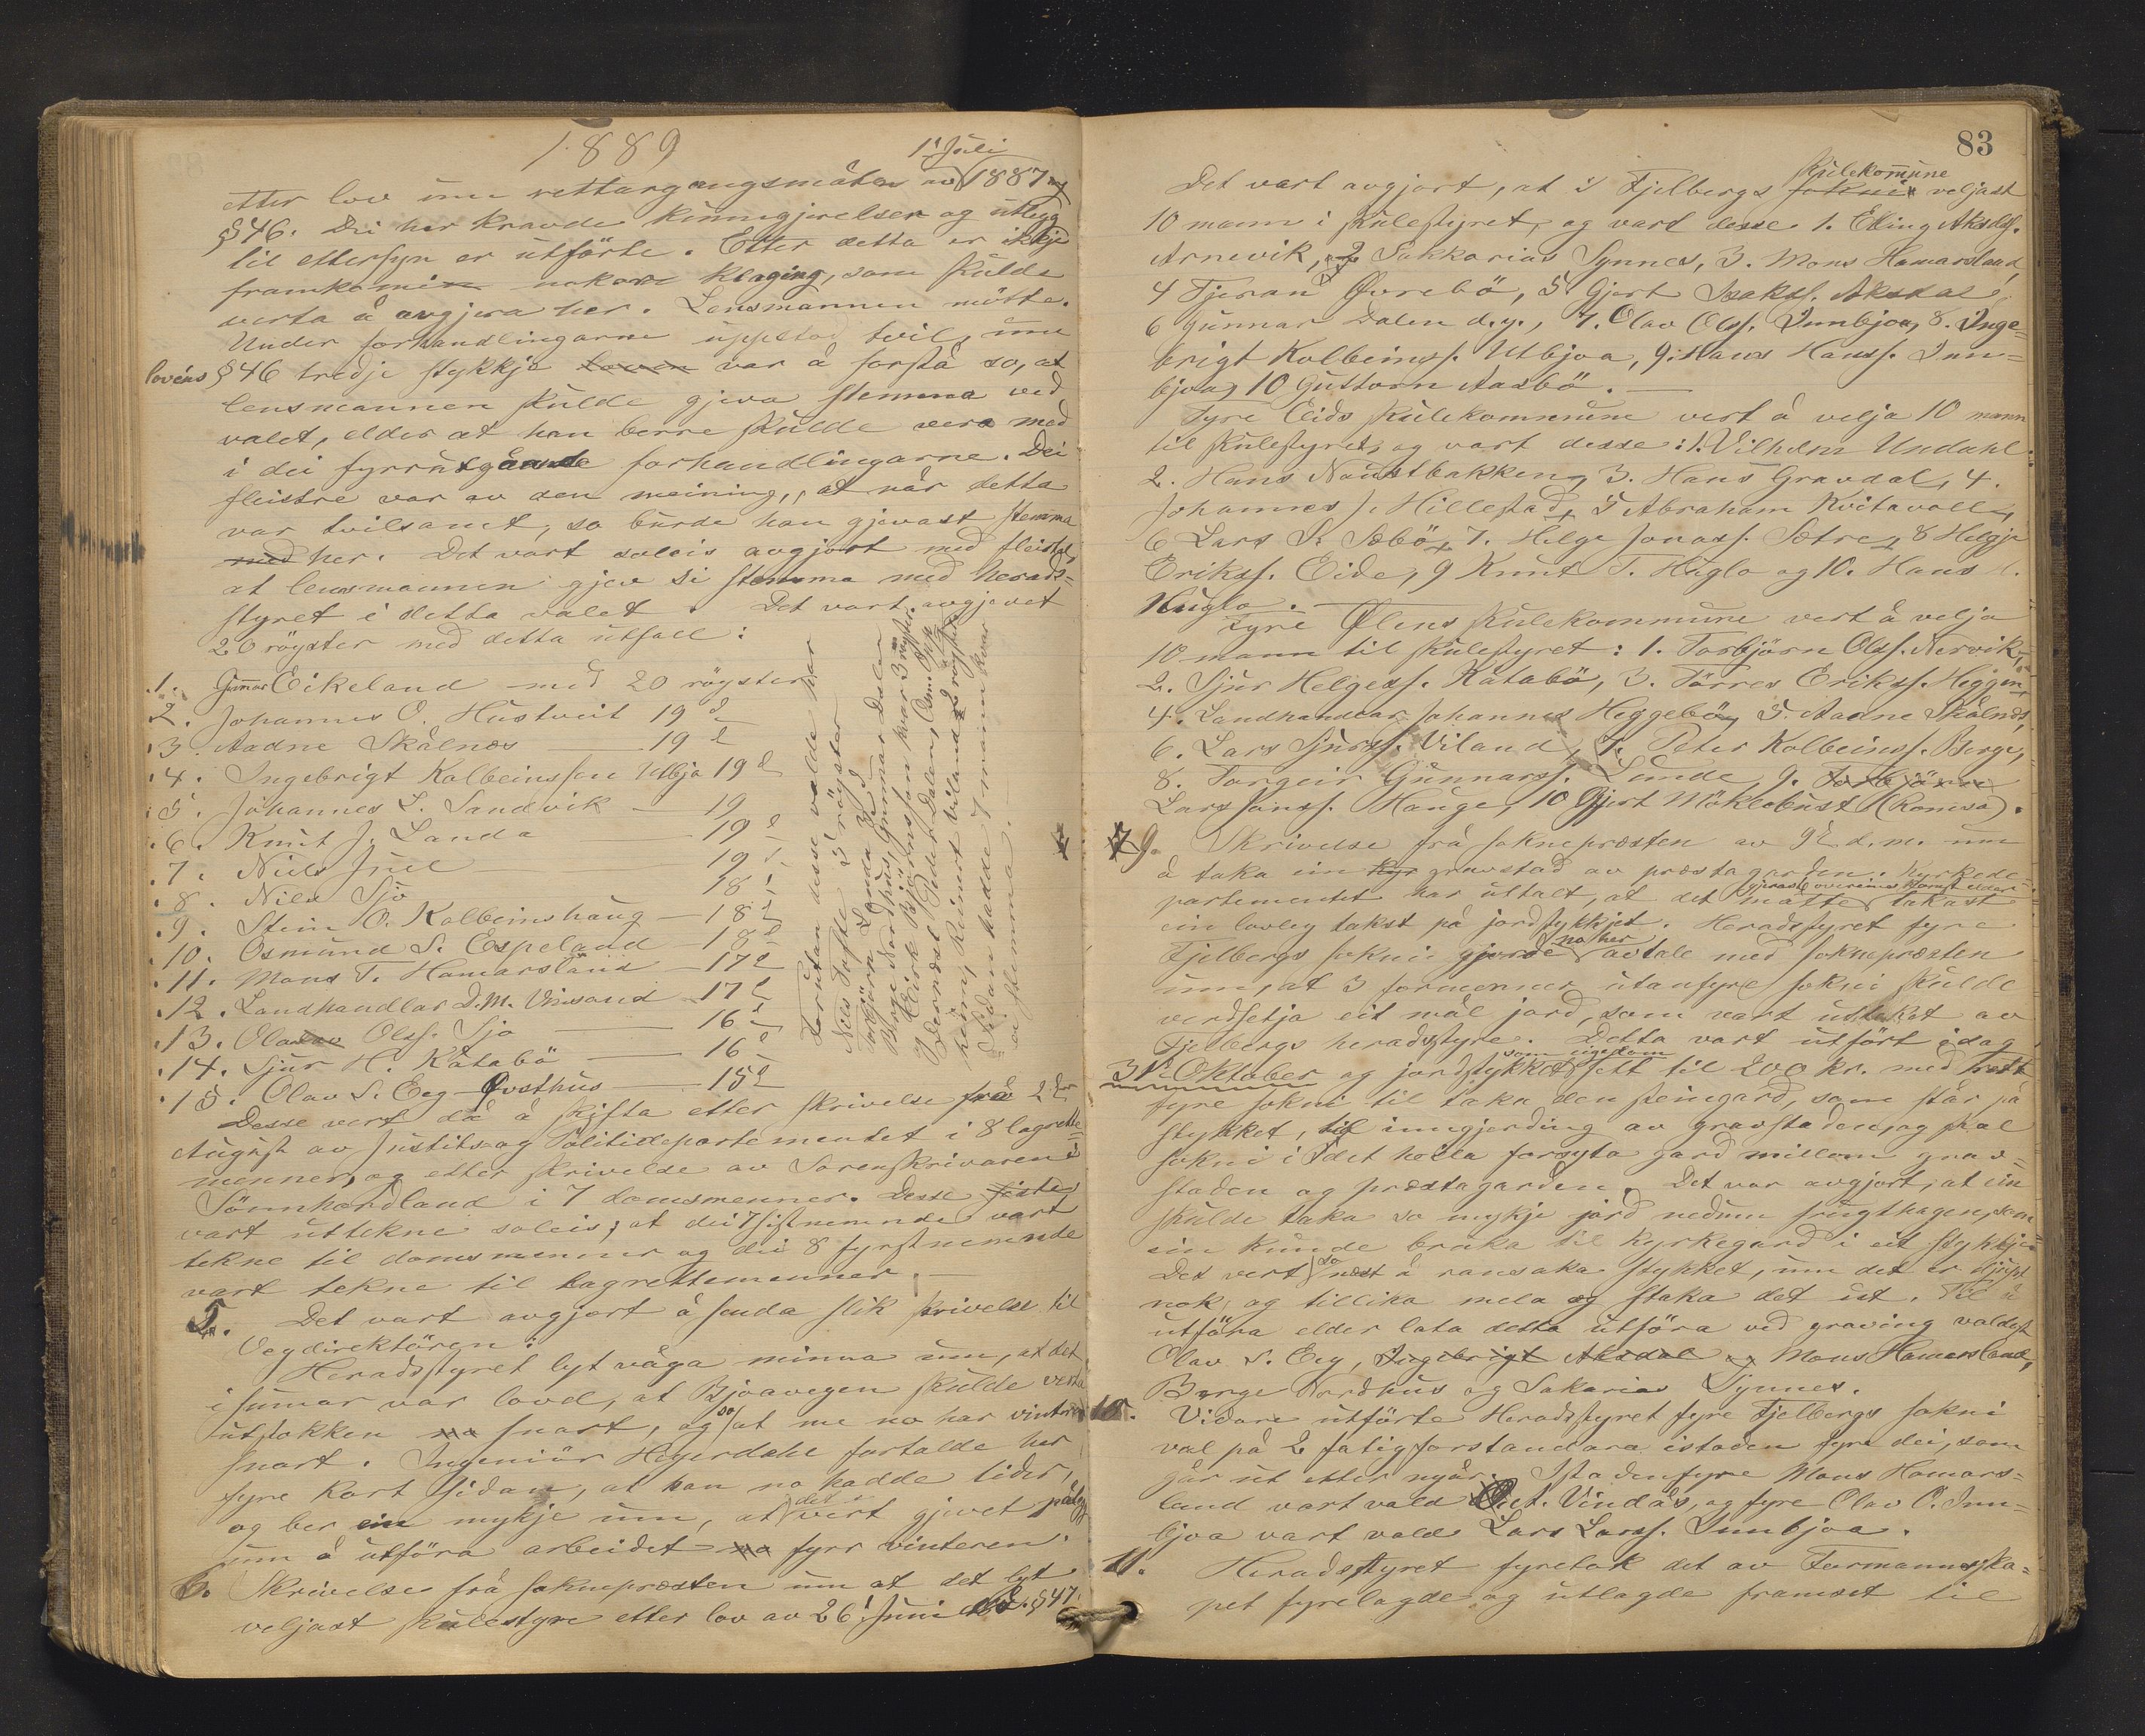 1889
etter lov um rettargangsmåten av 1ste Juli 1887
§ 46. Dei her kravde kunngjerelser og utlegg
til ettersyn er utförte. Etter detta er ikkje
framkomin nokore klaging, som skulde
verta å avgjera her. Lensmannen mötte.
Under forhandlingarne uppstod tvil, um
lovéns § 46 tredje stykkje loven var å forstå so, at
lensmannen skulde gjeva stemma ved
valet, elder at han berre skulde vera med
i dei fyrrútgåande forhandlingarne. Dei
fleistre var av den meining, at når detta
var tvilsamt, so burde han gjevast stemma
med her. Det vart soleis avgjort med fleistal,
at lensmannen gjev si stemma med herads=
styret i detta valet. Det vart avgjevet
20 röyster med detta utfall:
1. Gunnar Eikeland med 20 röyster
2. Johannes O. Hustveit 19 d
3. Aadne Skålnes 19 d
4. Ingebrigt Kolbeinssen Utbjo 19 d
5. Johannes L. Sandvik 19
6. Knut J. Landa 19 d
7. Niels Juel 19 d
8. Nils Sjo 18 d
9. Stein O. Kolbeinshaug 18 d
10. Osmund S. Espeland 18 d
11. Mons T. Hamarsland 17 d
12. Landhandlar D. M. Vinsand 17 d
13. Ola Olss. Sjo 16 d
14. Sjur H. Kåtabö 16 d
15. Olav S. Eeg Øvsthus 15 d
Forutan desse valde har
Nils Tofte 5 röyster
Torbjörn Landa 3 d
Börge Nordhus, Gunnar Dalen
Eirik Björnsson kvar 3 röyster.
Dernæst Peder Dalen, Osm. Opp
heim, Reinert Viland 2 röyster
Sidan hadde 7 mann kvar
ei stemma.
Desse vert då å skifta etter skrivelse frå 2den
August av Justits og Politidepartementet i 8 lagrette=
menner, og etter skrivelse av Sorenskrivaren i
Sönnhordland i 7 domsmenner. Desse siste
vart uttekne soleis, at dei 7 sistnemnde vart
tekne til domsmenner og dei 8 fyrstnemnde
vart tekne til lagrettemenner.
5. Det vart avgjort å senda slik skrivelse til
Vegdirektören:
Heradsstyret lyt våga minna um, at det
i sumar var lovd, at Bjoavegen skulde verta
utstokken no snart, og so at me no har vinteren
snart. Ingeniör Hegerdahl fortalde her
fyre kort sidan, at han no hadde tider,
og ber ein mykje um, at det vert gjevet pålegg
um å utföra arbeidet no fyrr vinteren.
6. Skrivelse frå sokneprœsten um at det lyt
veljast skulestyre etter lov av 26de Juni d.å. § 47.
83
Det vart avgjort, at i Fjelbergs sokni skulekommune veljast
10 mann i skulestyret, og vart desse 1. Elling Akselss.
Arnevik, 2 Sakkarias Synnes, 3. Mons Hamarsland,
4 Tjeran Øvrebö, 5 Gjert Isakss. Aksdal,
6 Gunnar Dalen d.y., 7. Olav Olss. Innbjoa, 8. Inge=
brigt Kolbeinss. Utbjoa, 9. Hans Hanss. Inn=
bjoa, 10 Guttorm Aasbö.
Fyre Eids skulekommune vert å velja 10 mann
til skulestyret, og vart desse: 1. Vilhelm Undahl
2. Hans Naustbakken, 3. Hans Gravdal, 4.
Johannes J. Hillestad, 5 Abraham Kvitavoll,
6 Lars S. Sæbö, 7. Helge Jonass. Sætre, 8 Helgje
Erikss. Eide, 9 Knut T. Huglo og 10. Hans
Huglo.
Fyre Ølens skulekommune vert å velja
10 mann til skulestyret: 1. Torbjörn Olss. Nervik,
2. Sjur Helgess. Kåtabö, 3. Törres Erikss. Heggen,
4. Landhandlar Johannes Heggebö, 5. Aadne Skålnes,
6. Lars Sjurss. Viland, 7. Peter Kolbeinss. Berge,
8. Torgeir Gunnarss. Lunde, 9. Torbjörn
Lars Jonss. Hauge, 10 Gjert Möklebust (Romsa).
9. Skrivelse frå sokneprœsten av 9de d.m. um
å taka ein kyr gravstad av prœstagarden. Kyrkede=
partementet har uttalt, at det måtte gjerast overeinskomst elder takast
ein lovleg takst på jordstykkjet. Heradsstyret fyre
Fjelbergs sokni gjorde no her avtale med sokneprœsten
um, at 3 formenner utanfyre sokni skulde
verdsetja eit mål jord, som vart uttaket av
Fjelbergs heradsstyre. Detta vart utfört idag
31te Oktober og jordstykket som eigedom sett til 200 kr. med rett
fyre sokni til taka den steingard, som står på
stykket, til inngjerding av gravstaden, og skal
sokni i det heila forsyta gard millom grav=
staden og prœstagarden. Det var avgjort, at ein
skulde taka so mykje jord nedum frugthagen, som
ein kunde bruka til kyrkegard i eit stykkje.
Det vert so næst å ransaka stykket, um det er djupt
nok, og tillika mela og staka det ut. Til å
utföra elder lata detta utföra ved graving valdest
Olav S. Eeg, Ingebrigt Aksdal og Mons Hamarsland,
Børge Nordhus og Sakarias Synnes.
10. Vidare utförte Heradsstyret fyre Fjelbergs sokni
val på 2 fatigforstandara istaden fyre dei, som
går ut etter nyår. Istadenfyre Mons Hamars=
land vart vald O. A. Vindås, og fyre Olav O. Inn=
bjoa vart vald Lars Larss. Innbjoa.
11. Heradsstyret fyretok det av Formannsska=
pet fyrelagde og utlagde framset til